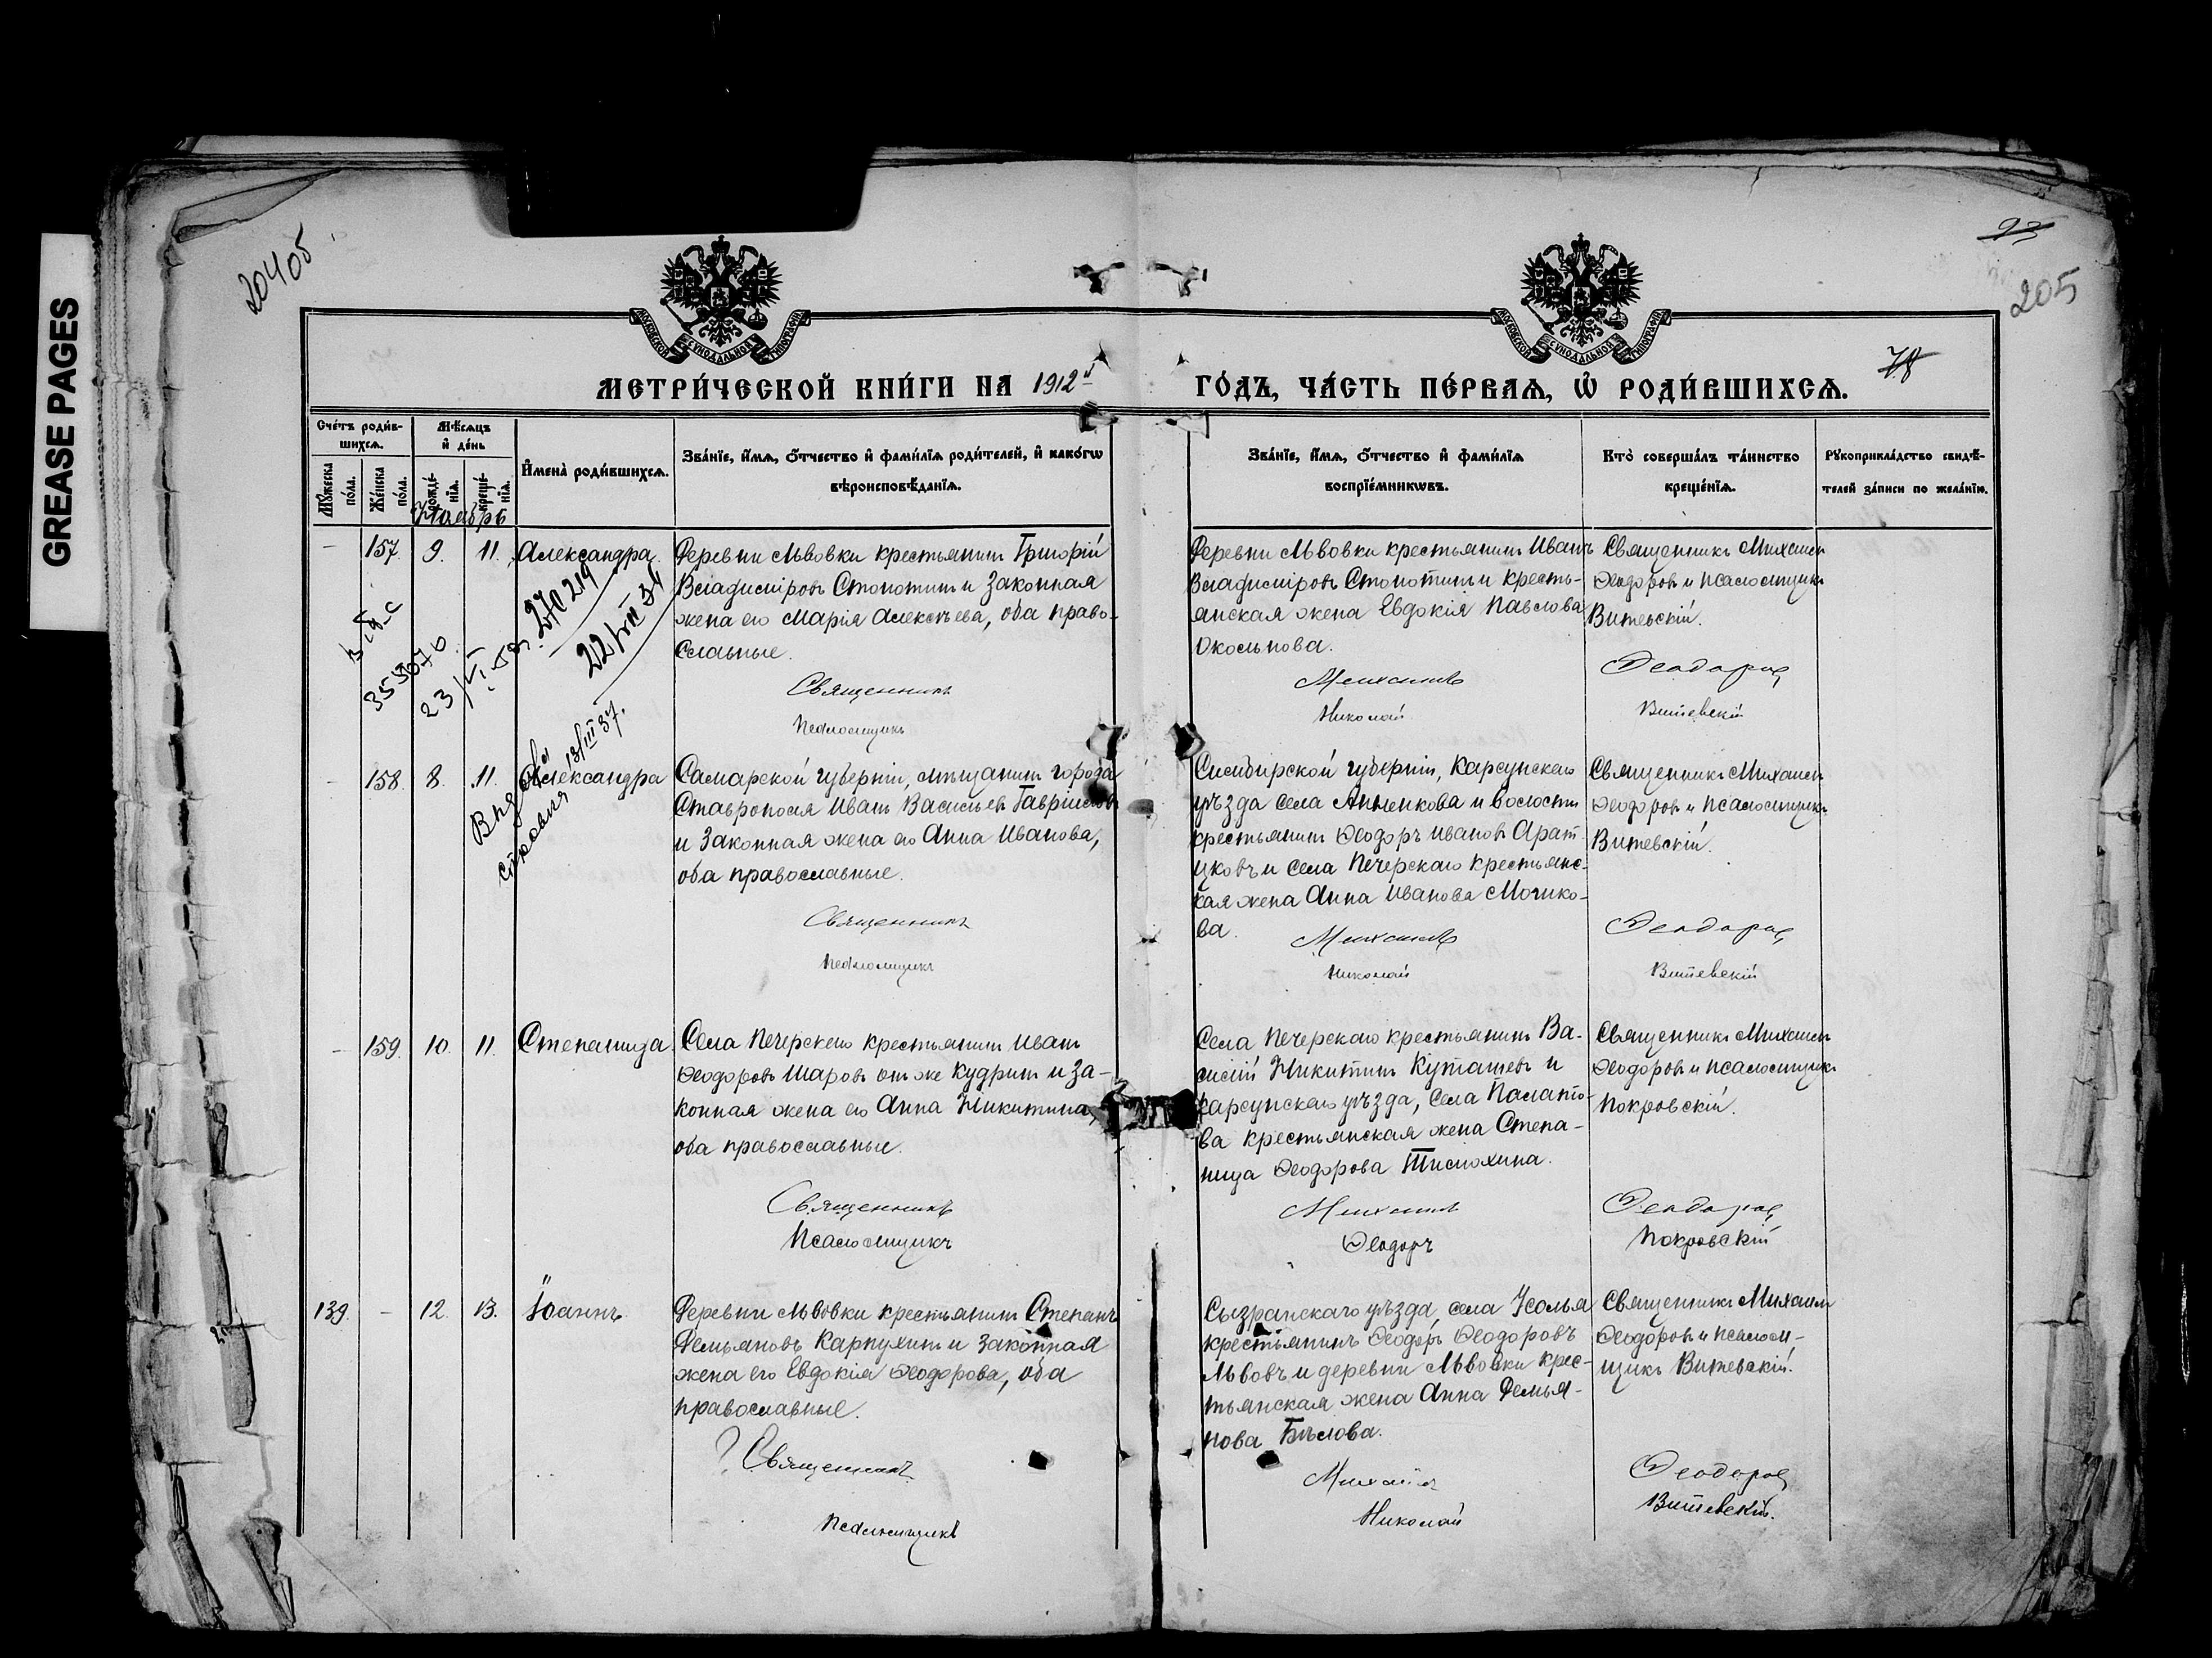 GREASE PAGES
204об
93
205
78
МОСКОВСКОЙ СѴНОДАЛЬНОЙ ТИПОГРАФІИ
МОСКОВСКОЙ СѴНОДАЛЬНОЙ ТИПОГРАФІИ
МЕТРИ́ЧЕСКОЙ КНИ́ГИ НА 1912й ГО́ДЪ, ЧА́СТЬ ПЕ́РВАѦ, Ѡ҆ РОДИ́ВШИХСѦ.
Сче́тъ роди́в-
шихсѧ.
Мѣ́сѧцъ
и҆ де́нь
Мꙋ́жеска по́ла.
Же́нска по́ла.
рожде́-
нїѧ.
креще́-
нїѧ.
И҆мена̀ роди́вшихсѧ.
Зва́нїе, и҆́мѧ, ѻ҆́тчество и҆ фами́лїѧ роди́телей, и҆ како́гѡ
вѣроисповѣ́данїѧ.
Зва́нїе, и҆́мѧ, ѻ҆́тчество и҆ фами́лїѧ
воспрїе́мникѡвъ.
Кто̀ соверша́лъ та́инство
креще́нїѧ.
Рꙋкоприкла́дство свидѣ́-
телей за́писи по жела́нїю.
Ноябрь
— 157. 9. 11. Александра.
Деревни Львовки крестьянинъ Григорій
Владиміровъ Стопотинъ и законная
жена его Марія Алексѣева, оба право-
славные.
Священникъ
Псаломщикъ
Деревни Львовки крестьянинъ Иванъ
Владиміровъ Стопотинъ и кресть-
янская жена Евдокія Павлова
Окольнова.
Михаилъ
Николай
Священникъ Михаилъ
Ѳеодоровъ и псаломщикъ
Витевскій.
Ѳеодоровъ
Витевскій
353070
23/VI-59.
270219
22/VII 34
Выдана
13/III 37.
— 158. 8. 11. Александра
Самарской губерніи, мѣщанинъ города
Ставрополя Иванъ Васильевъ Гавриловъ
и законная жена его Анна Иванова,
оба православные.
Священникъ
Псаломщикъ
Симбирской губерніи, Карсунскаго
уѣзда села Анненкова и волости
крестьянинъ Ѳеодоръ Ивановъ Арат-
цковъ и села Печерскаго крестьянс-
кая жена Анна Иванова Мочико-
ва.
Михаилъ
Николай
Священникъ Михаилъ
Ѳеодоровъ и псаломщикъ
Витевскій.
Ѳеодоровъ
Витевскій
— 159. 10. 11. Степанида
Села Печерскаго крестьянинъ Иванъ
Ѳеодоровъ Шаровъ онъ же Кудринъ и за-
конная жена его Анна Никитина,
оба православные.
Священникъ
Псаломщикъ
Села Печерскаго крестьянинъ Ва-
силій Никитинъ Куташевъ и
Карсунскаго уѣзда, села Палато-
ва крестьянская жена Степа-
нида Ѳеодорова Тимохина.
Михаилъ
Ѳеодоръ
Священникъ Михаилъ
Ѳеодоровъ и псаломщикъ
Покровскій.
Ѳеодоровъ
Покровскій
139. — 12. 13. Іоаннъ.
Деревни Львовки крестьянинъ Степанъ
Демьяновъ Карпухинъ и законная
жена его Евдокія Ѳеодорова, оба
православные.
Священникъ
Псаломщикъ
Сызранскаго уѣзда, села Усолья
крестьянинъ Ѳеодоръ Ѳеодоровъ
Львовъ и деревни Львовки крес-
тьянская жена Анна Демья-
нова Бѣлова.
Михаилъ
Николай
Священникъ Михаилъ
Ѳеодоровъ и псалом-
щикъ Витевскій.
Ѳеодоровъ
Витевскій.